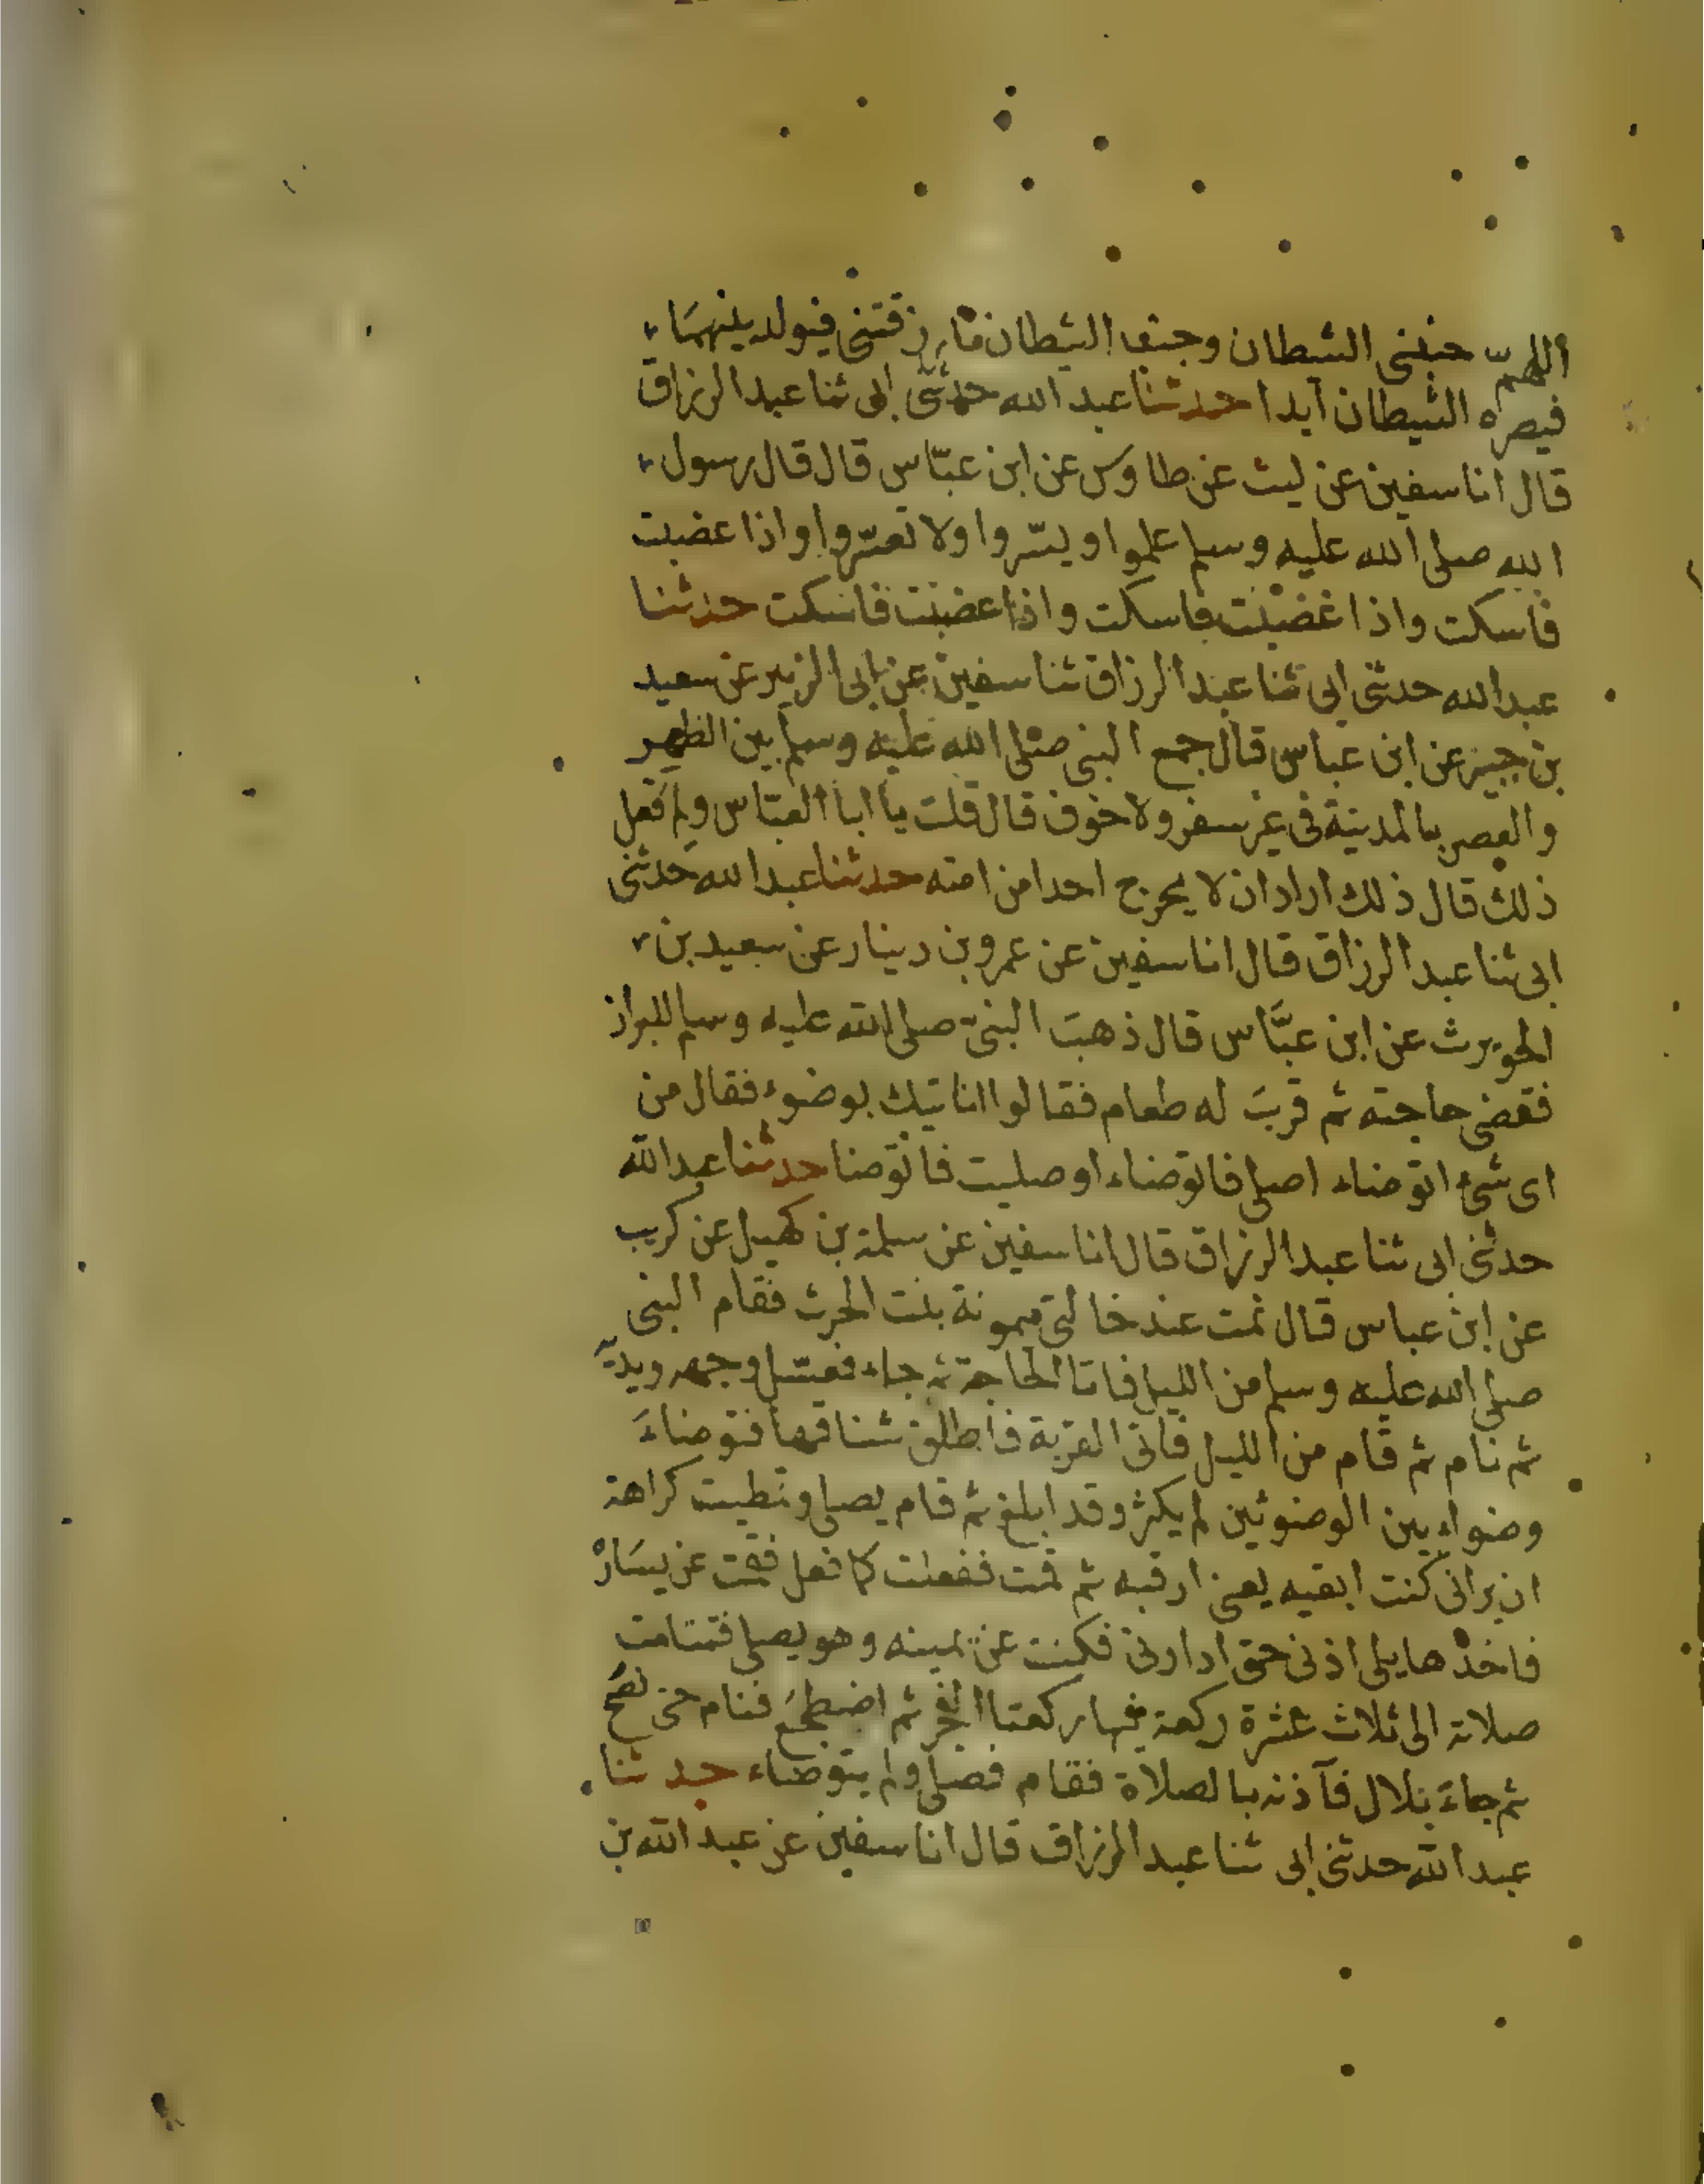 اللهم جنبنى الشيطان وجنب الشيطان ما رزقتنى فيولد بينهما
فيصره الشيطان ابدا حدثنا عبد الله حدثنى ابى ثنا عبد الرزاق
قال انا سفين عن ليث عن طاوس عن ابن عباس قال قال رسول
الله صلى الله عليه وسلم علموا ويسروا ولا تعسروا واذا غضبت
فاسكت واذا غضبت فاسكت واذا غضبت فاسكت حدثنا
عبد الله حدثنى ابى ثنا عبد الرزاق ثنا سفين عن ابى الزبير عن سعيد
بن جبير عن ابن عباس قال جمع النبى صلى الله عليه وسلم بين الظهر
والعصر بالمدينة فى غير سفر ولا خوف قال قلت يا ابا العباس ولم فعل
ذلك قال ذلك اراد ان لا يحرج احدا من امته حدثنا عبد الله حدثنى
ابى ثنا عبد الرزاق قال انا سفين عن عمرو بن دينار عن سعيد بن
الحويرث عن ابن عباس قال ذهب النبى صلى الله عليه وسلم للبراز
فقضى حاجته ثم قرب له طعام فقالوا اناتيك بوضوء فقال من
اى شىء اتوضاء اصلى فاتوضاء او صليت فاتوضا حدثنا عبد الله
حدثنى ابى ثنا عبد الرزاق قال انا سفين عن سلمة بن كهيل عن كريب
عن ابن عباس قال نمت عند خالتى ميمونة بنت الحرث فقام النبى
صلى الله عليه وسلم من الليل فاتا الحاجة ثم جاء فغسل وجهه ويديه
ثم نام ثم قام من الليل فاتى القربة فاطلق شناقها فتوضاء
وضواء بين الوضوئين لم يكثر وقد ابلغ ثم قام يصلى وتطيت كراهة
ان يرانى كنت ابقيه يعنى ارقبه ثم قمت ففعلت كما فعل فقمت عن يساره
فاخذ هايلى اذنى حتى ادارنى فكنت عن يمينه وهو يصلى فتتامت
صلاته الى ثلاث عشرة ركعة فيها ركعتا الفجر ثم اضطجع فنام حتى نفخ
ثم جاء بلال فآذنه بالصلاة فقام فصلى ولم يتوضاء حدثنا
عبد الله حدثنى ابى ثنا عبد الرزاق قال انا سفين عن عبد الله بن